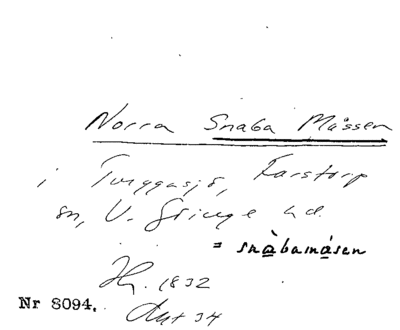 Norra Snaba Måssen
i Tviggasjö, Farstorp
sn, V. Göinge hd.
= snàbamåsen
Hy. 1832
Nr 8094. Akt 34